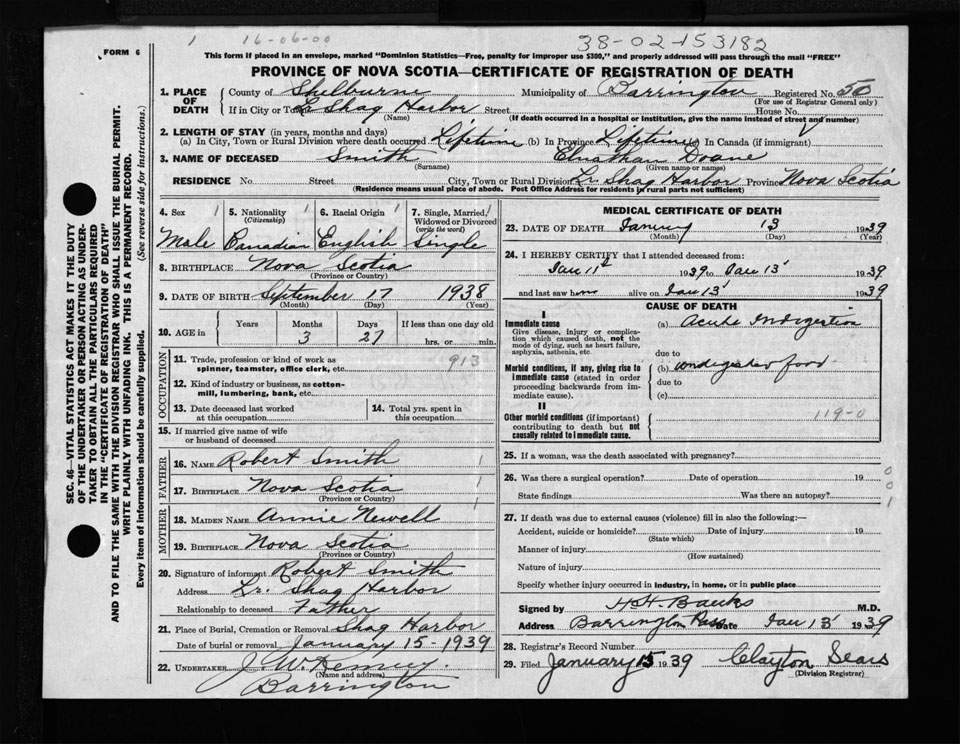 1 16-06-00 38-02-153182
FORM 6
This form if placed in an envelope, marked "Dominion Statistics—Free, penalty for improper use $300," and properly addressed will pass through the mail "FREE"
PROVINCE OF NOVA SCOTIA—CERTIFICATE OF REGISTRATION OF DEATH
SEC. 46—VITAL STATISTICS ACT MAKES IT THE DUTY
OF THE UNDERTAKER OR PERSON ACTING AS UNDER-
TAKER TO OBTAIN ALL THE PARTICULARS REQUIRED
IN THE "CERTIFICATE OF REGISTRATION OF DEATH"
AND TO FILE THE SAME WITH THE DIVISION REGISTRAR WHO SHALL ISSUE THE BURIAL PERMIT.
WRITE PLAINLY WITH UNFADING INK. THIS IS A PERMANENT RECORD.
Every item of information should be carefully supplied. (See reverse side for instructions.)
1. PLACE OF DEATH County of Shelburne Municipality of Barrington Registered No. 50
(For use of Registrar General only)
If in City or Town L. Shag Harbor Street House No.
(Name) (If death occurred in a hospital or institution, give the name instead of street and number)
2. LENGTH OF STAY (in years, months and days)
(a) In City, Town or Rural Division where death occurred Lifetime (b) In Province Lifetime (c) In Canada (if immigrant)
3. NAME OF DECEASED Smith Elnathan Doane
(Surname) (Given name or names)
RESIDENCE No. Street City, Town or Rural Division Lr. Shag Harbor Province Nova Scotia
(Residence means usual place of abode. Post Office Address for residents in rural parts not sufficient)
4. Sex 1 5. Nationality 1 6. Racial Origin 1 7. Single, Married, 1
(Citizenship) Widowed or Divorced
(write the word)
Male Canadian English Single
8. BIRTHPLACE Nova Scotia
(Province or Country)
9. DATE OF BIRTH September 17 1938
(Month) (Day) (Year)
10. AGE in Years Months Days If less than one day old
3 27 hrs. or min.
OCCUPATION
11. Trade, profession or kind of work as
spinner, teamster, office clerk, etc. 913
12. Kind of industry or business, as cotton-
mill, lumbering, bank, etc.
13. Date deceased last worked
at this occupation
14. Total yrs. spent in
this occupation
15. If married give name of wife
or husband of deceased
FATHER
16. NAME Robert Smith 1
17. BIRTHPLACE Nova Scotia 1
(Province or Country)
MOTHER
18. MAIDEN NAME Annie Newell
19. BIRTHPLACE Nova Scotia
(Province or Country)
20. Signature of informant Robert Smith
Address Lr. Shag Harbor
Relationship to deceased Father
21. Place of Burial, Cremation or Removal Shag Harbor
Date of burial or removal January 15 1939
22. UNDERTAKER J. W.
(Name and address)
Barrington
MEDICAL CERTIFICATE OF DEATH
23. DATE OF DEATH January 13 1939
(Month) (Day) (Year)
24. I HEREBY CERTIFY that I attended deceased from:
Jan 11 1939 to Jan 13 1939
and last saw him alive on Jan 13 1939
CAUSE OF DEATH
I
Immediate cause (a) Acute Indigestion
Give disease, injury or complica-
tion which caused death, not the
mode of dying, such as heart failure,
asphyxia, asthenia, etc. due to
Morbid conditions, if any, giving rise to (b) undigested food
immediate cause (stated in order due to
proceeding backwards from im-
mediate cause). (c)
II
Other morbid conditions (if important) 119-0
contributing to death but not
causally related to immediate cause.
25. If a woman, was the death associated with pregnancy?
26. Was there a surgical operation? Date of operation 19 0
0
State findings Was there an autopsy? 1
27. If death was due to external causes (violence) fill in also the following:—
Accident, suicide or homicide? Date of injury 19
(State which)
Manner of injury
(How sustained)
Nature of injury
Specify whether injury occurred in industry, in home, or in public place
Signed by H H Banks M.D.
Address Barrington Pass Date Jan 13 1939
28. Registrar's Record Number
29. Filed January 15 1939 Clayton Sears
(Division Registrar)